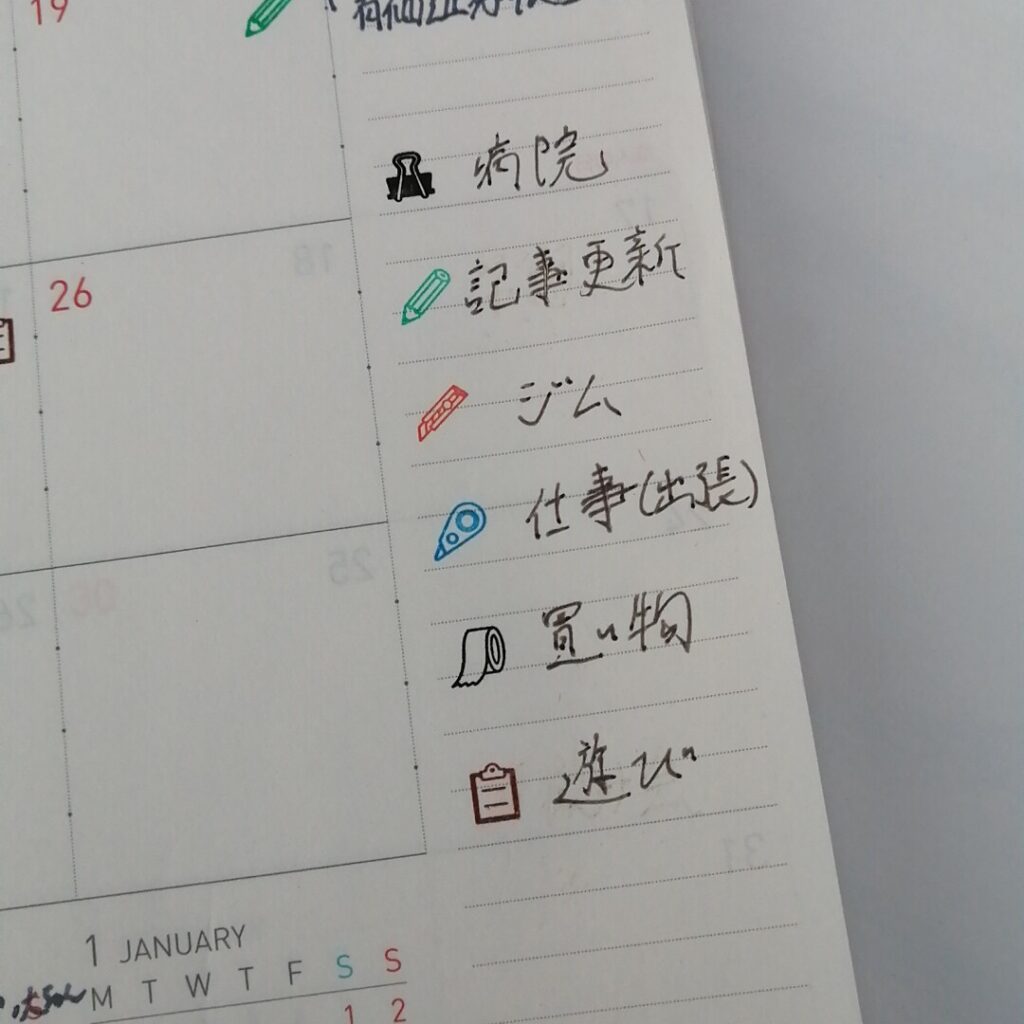 19
病院
記事更新
26
ジム
仕事(出張)
買い物
遊び
1 JANUARY
M T W T F S S
1 2